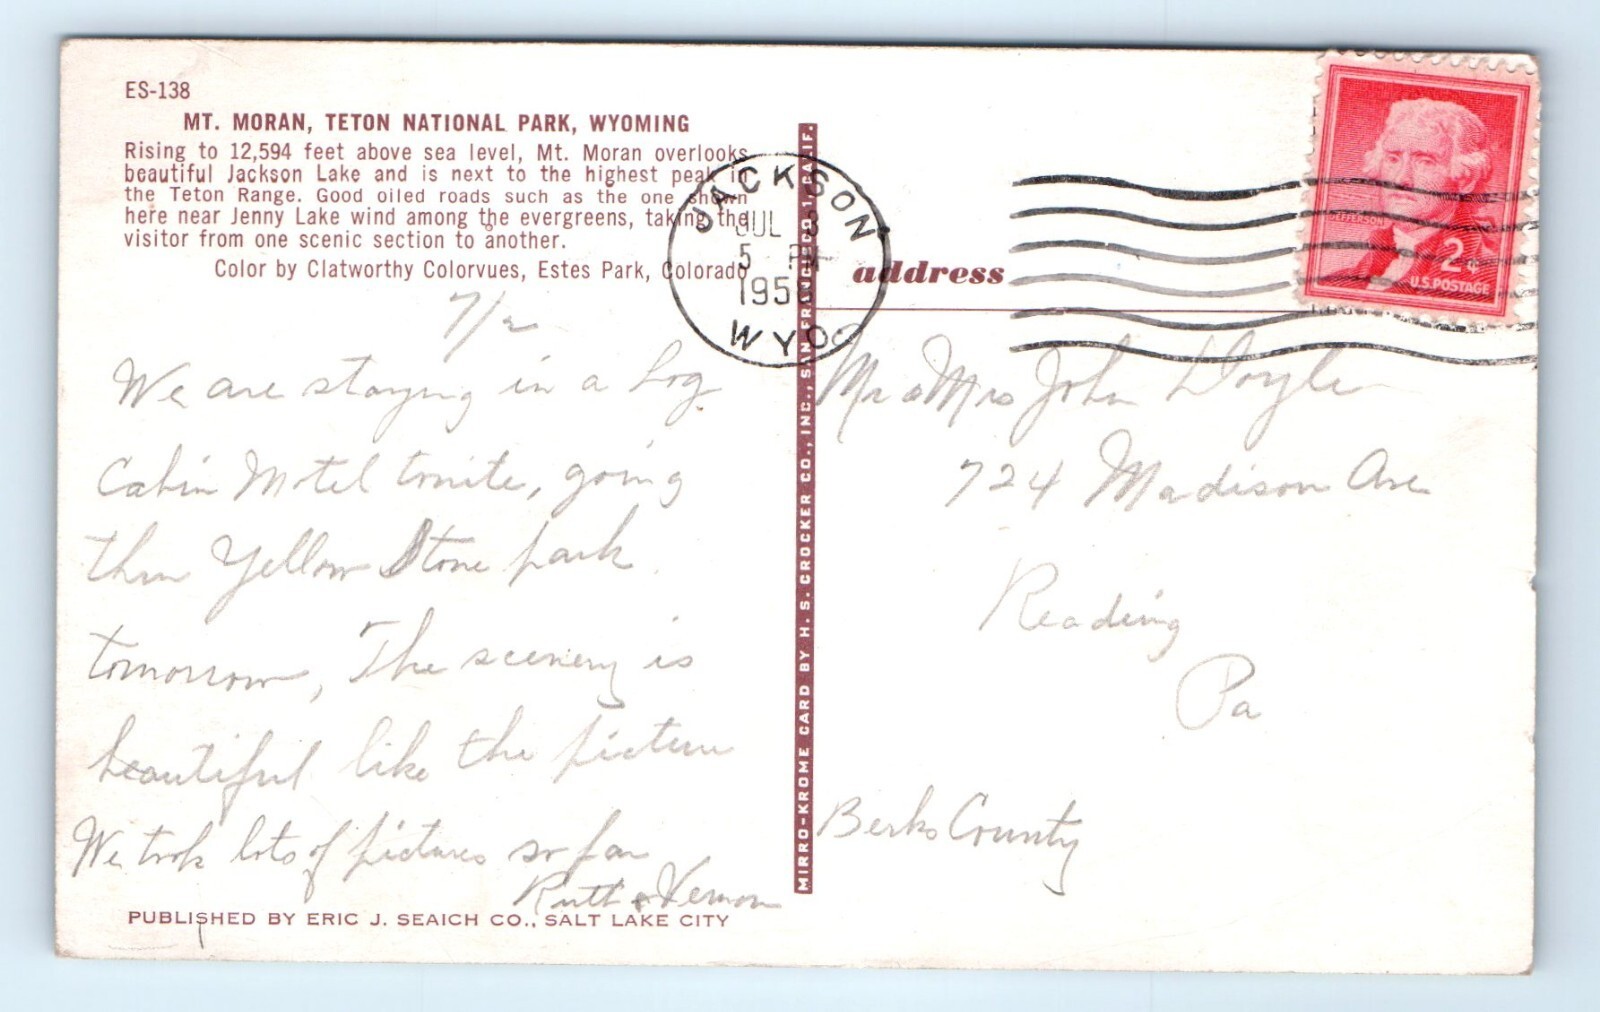 ES-138
MT. MORAN, TETON NATIONAL PARK, WYOMING
Rising to 12,594 feet above sea level, Mt. Moran overlooks
beautiful Jackson Lake and is next to the highest peak in
the Teton Range. Good oiled roads such as the one shown
here near Jenny Lake wind among the evergreens, taking the
visitor from one scenic section to another.
Color by Clatworthy Colorvues, Estes Park, Colorado
7/2
We are staying in a Log
Cabin Motel tonite, going
thru Yellow Stone park
tomorrow, The scenery is
beautiful like the picture
We took lots of pictures so far
Ruth & Vernon
PUBLISHED BY ERIC J. SEAICH CO., SALT LAKE CITY
MIRRO-KROME CARD BY H. S. CROCKER CO., INC., SAN FRANCISCO 1, CALIF.
JACKSON
JUL 3
5 PM
195
WYO
address
JEFFERSON
2¢
U.S. POSTAGE
Mr & Mrs John
724 Madison Ave
Reading
Pa
Berks County